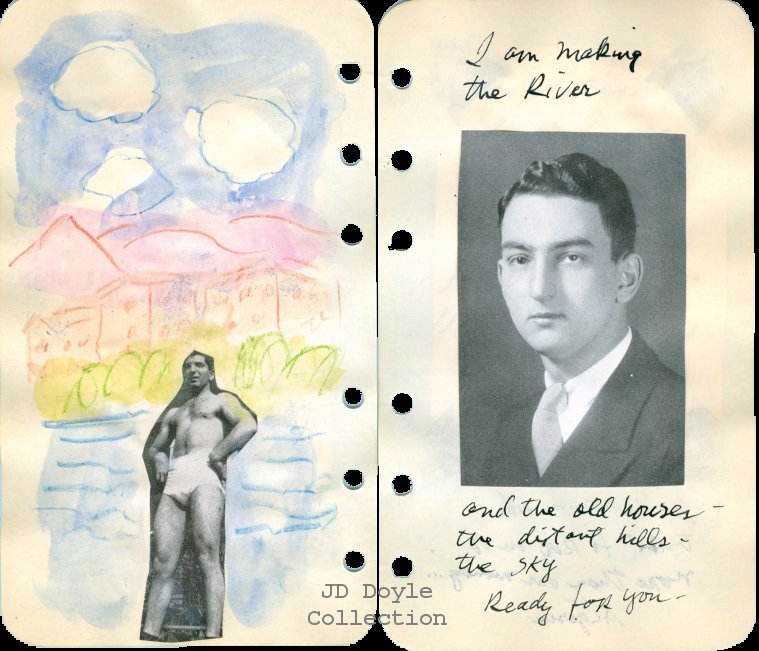 I am making
the River
and the old houses –
the distant hills –
the sky
Ready for you –
JD Doyle
Collection